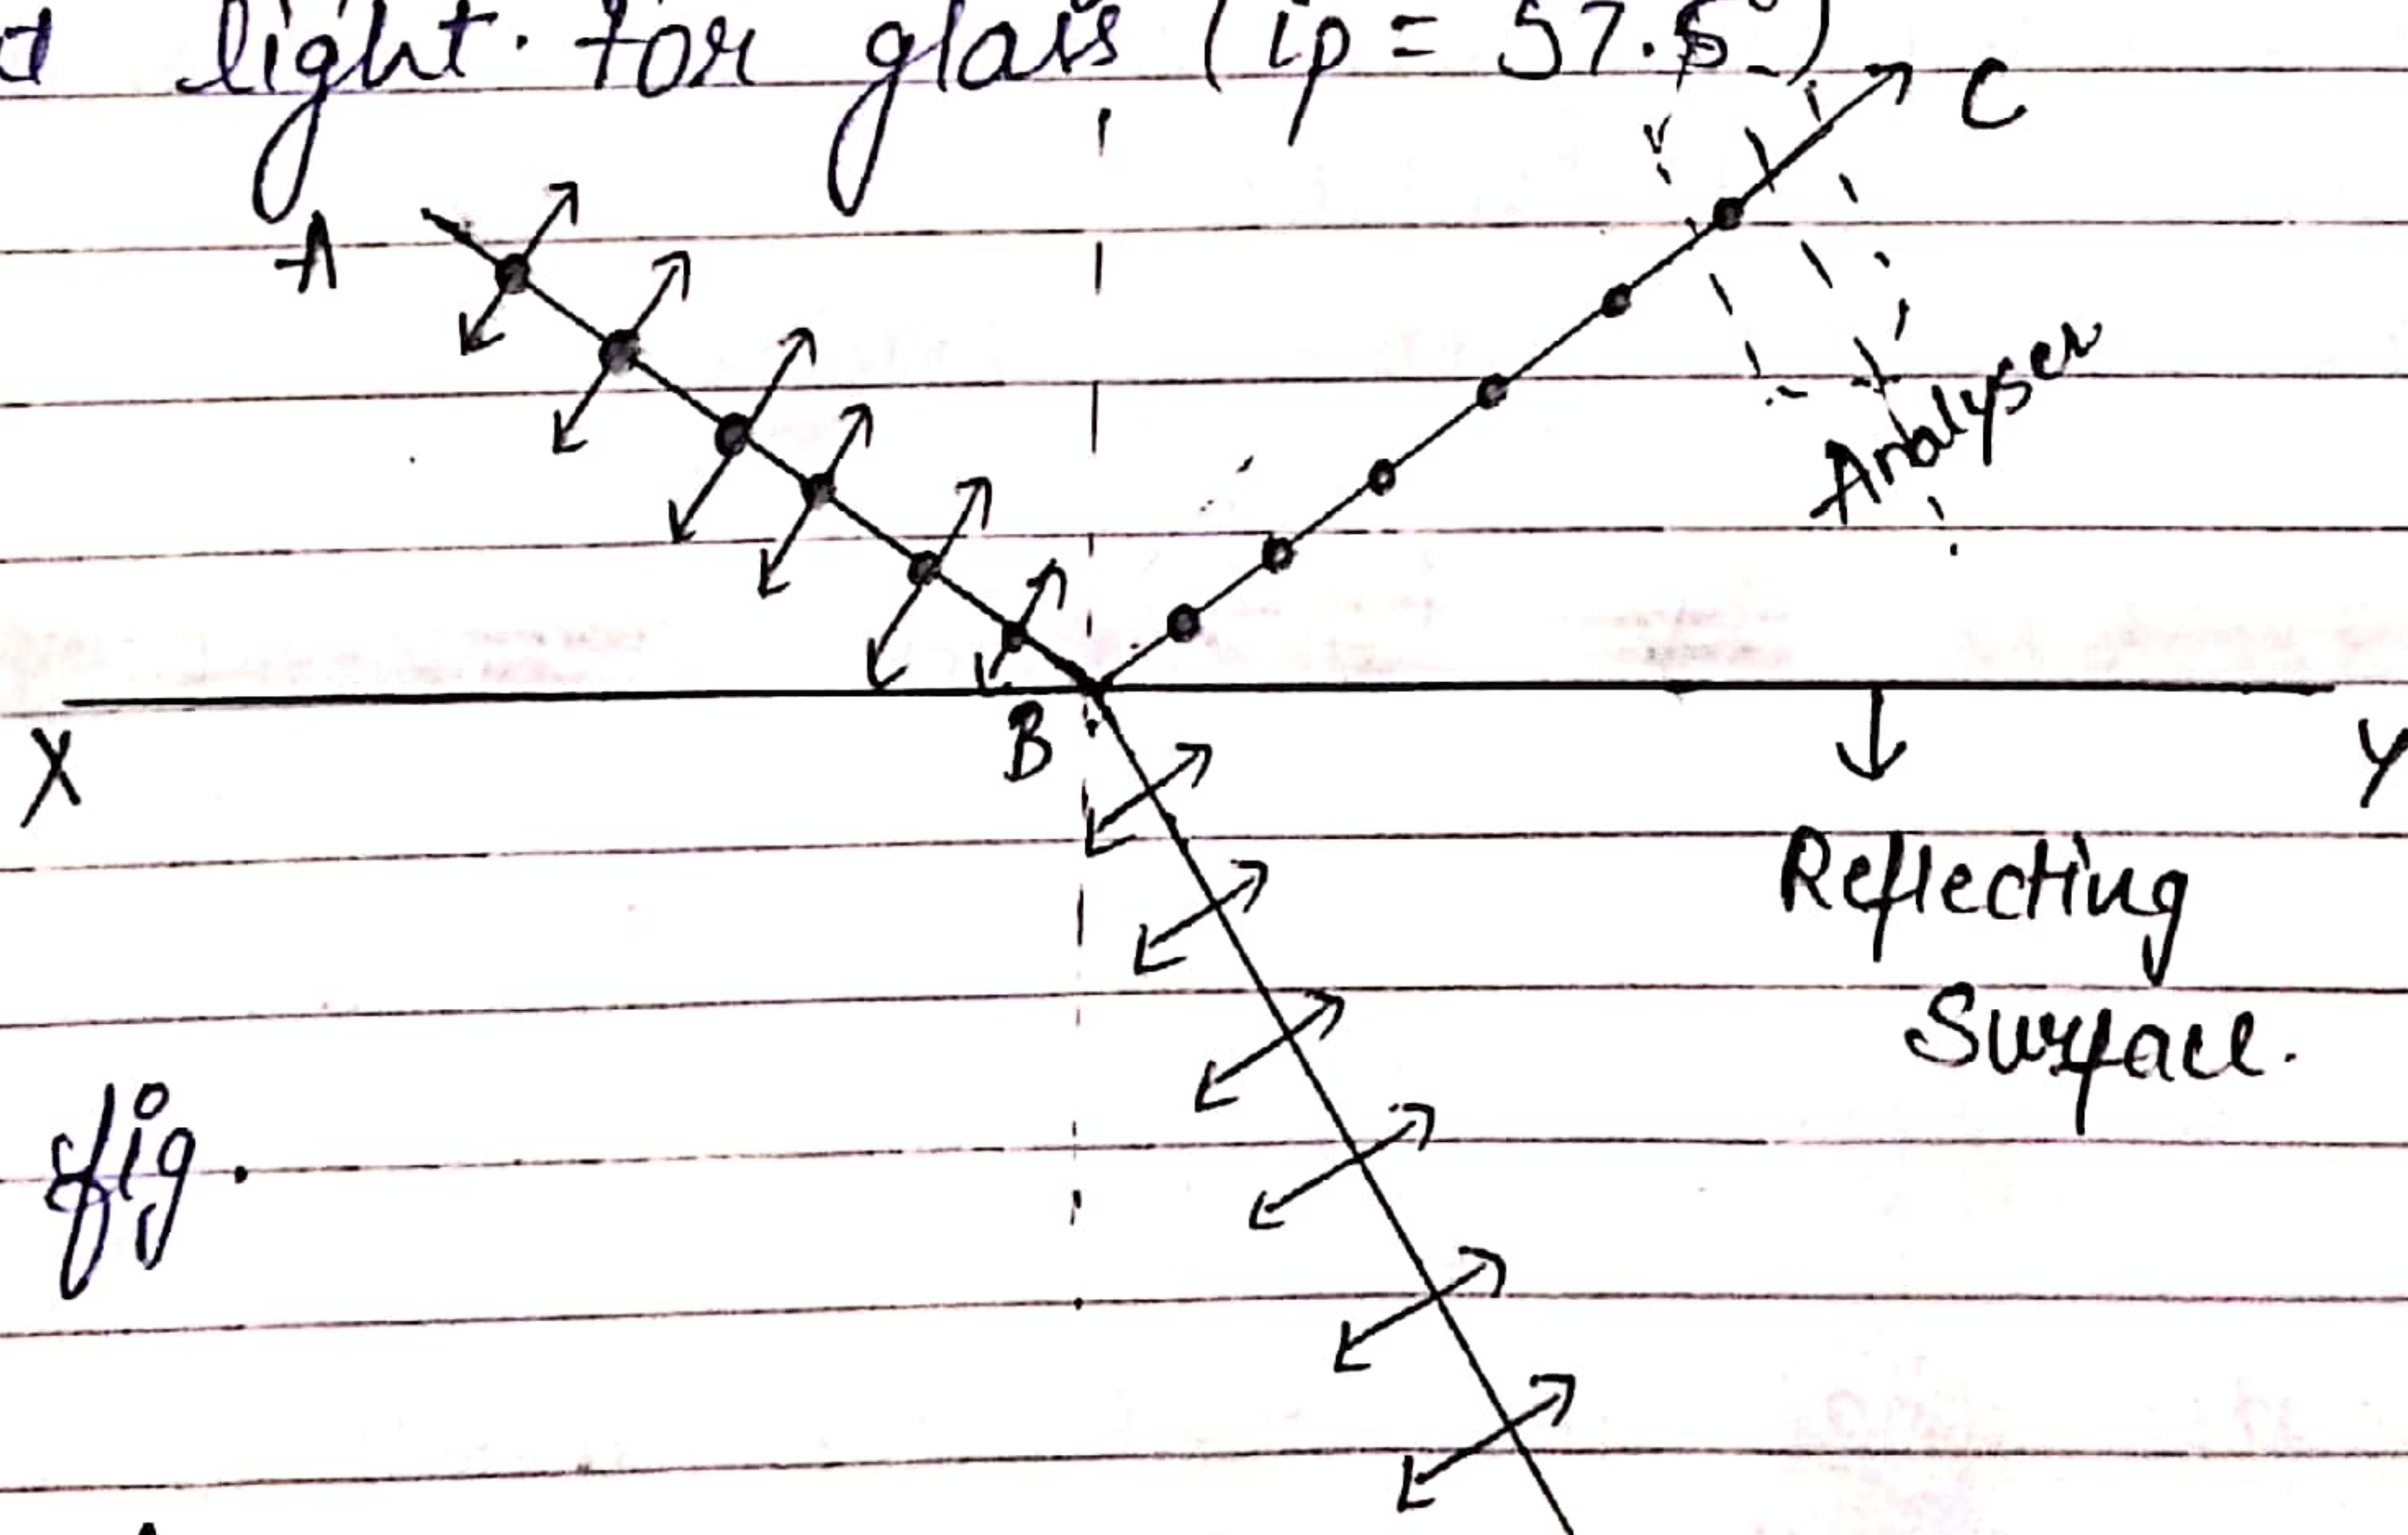 light. for glass (ip = 57.5°)
C
A
Analyser
B
X
Y
Reflecting
Surface.
fig.